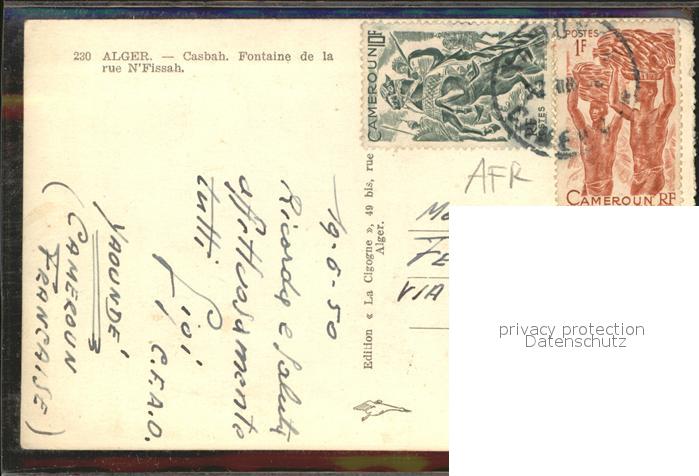 230 ALGER. — Casbah. Fontaine de la
rue N'Fissah.
CAMEROUN
RF
POSTES
POSTES
1F
CAMEROUN RF
AFR
Edition « La Cigogne », 49 bis, rue
Alger.
19-6-50
Ricordo e saluti
affettuosamente
tutti
Gigi
C.F.A.O.
YAOUNDE'
(CAMEROUN
FRANCAISE)
VIA
privacy protection
Datenschutz